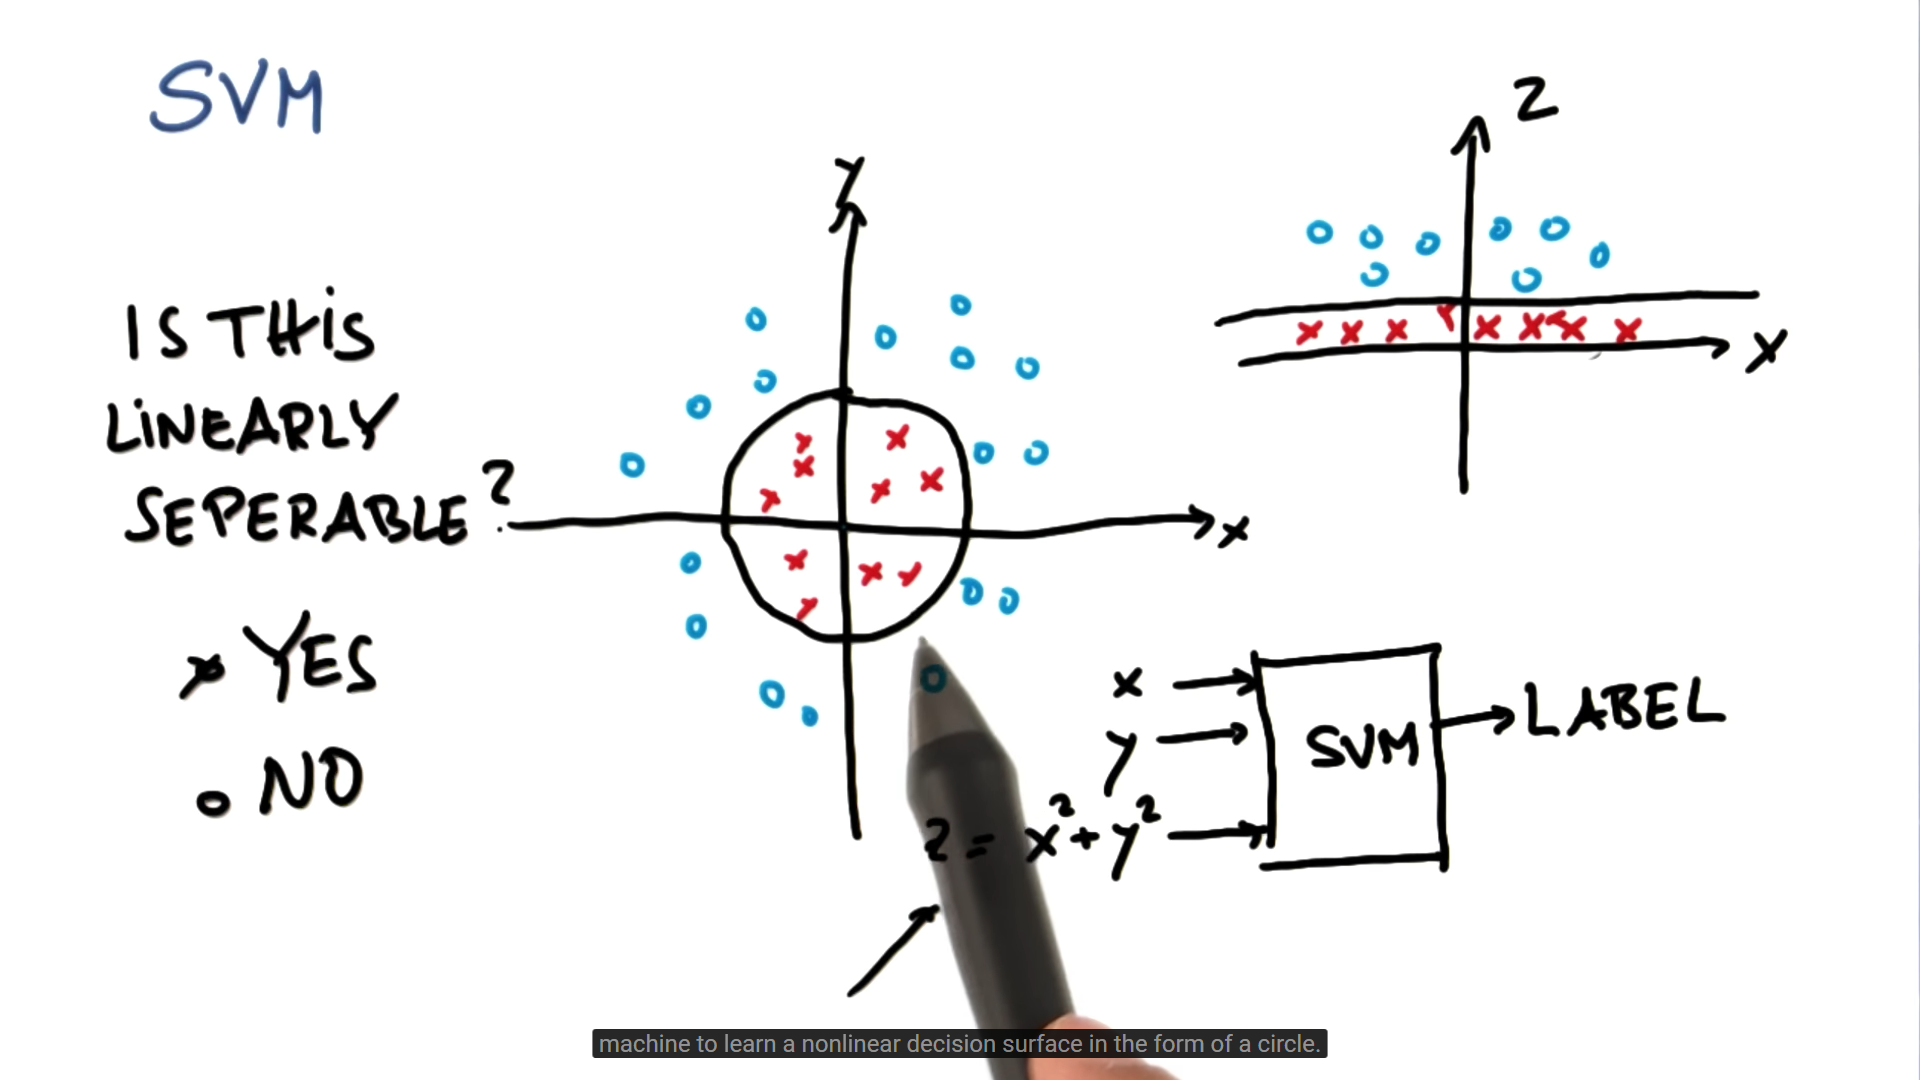 SVM
IS THIS
LINEARLY
SEPERABLE?
x YES
o NO
y
x
z
x
x
y
z = x²+y²
SVM
LABEL
machine to learn a nonlinear decision surface in the form of a circle.